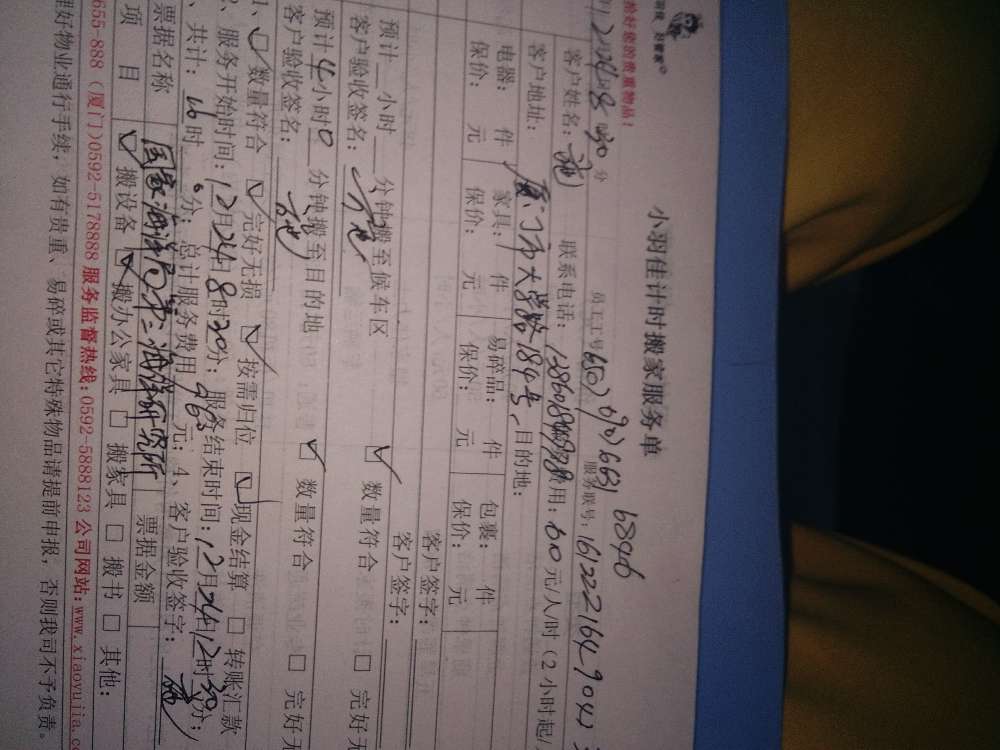 小羽佳计时搬家服务单
员工工号 650) 690) 6631 6846
服务联号: 161222164_9041
24日8时30分
客户姓名: 施 联系电话: 费用: 60元/人/时(2小时起/
客户地址: 厦门市大学路184号、目的地:
电器: 件 家具: 件 易碎品: 件 包裹: 件 客户签字:
保价: 元 保价: 元 保价: 元 保价: 元 客户签字:
预计 小时 分钟搬至候车区 ☑ 数量符合 □ 完好无
客户验收签名:
预计 4小时0 分钟搬至目的地 ☑ 数量符合 □ 完好无
客户验收签名:
1、☑ 数量符合 ☑ 完好无损 ☑ 按需归位 ☑ 现金结算 □ 转账汇款
2、服务开始时间: 12月24日8时30分; 服务结束时间: 12月24日12时30分;
、共计: 16时0分; 总计服务费用 960元; 4、客户验收签字: 施
票据名称 国家海洋局第三海洋研究所 票据金额
项 目 ☑ 搬设备 ☑ 搬办公家具 □ 搬家具 □ 搬书 □ 其他:
655-888 (厦门)0592-5178888 服务监督热线: 0592-5888123 公司网站: www.xiaoyujia.co
理好物业通行手续, 如有贵重、易碎或其它特殊物品请提前申报, 否则我司不予负责。